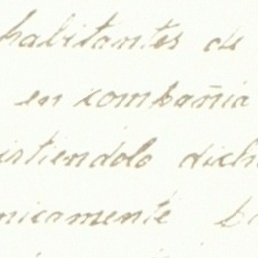 habitantes de
en compañia
irtiendolo dich
nicamente bi